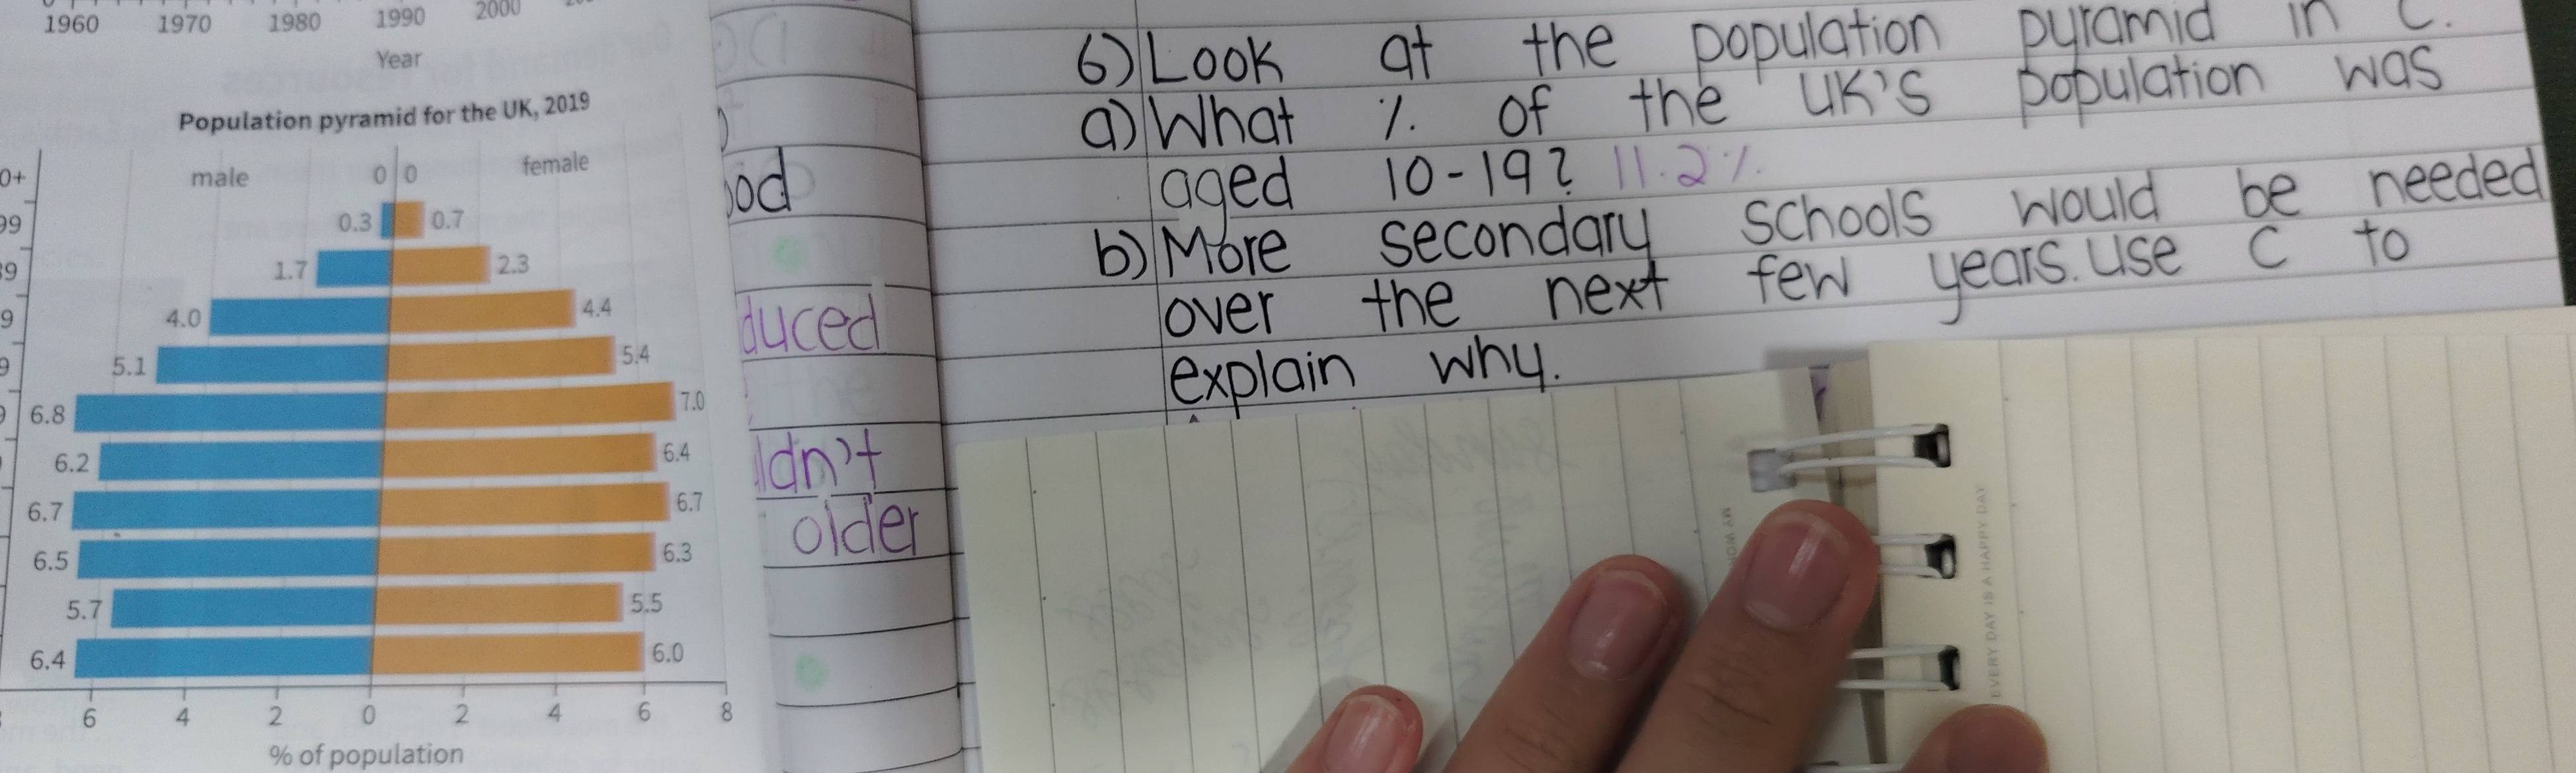 1960 1970 1980 1990 2000
Year
Population pyramid for the UK, 2019
male 0 0 female
0+
99 0.3 0.7
9 1.7 2.3
9 4.0 4.4
9 5.1 5.4
6.8 7.0
6.2 6.4
6.7 6.7
6.5 6.3
5.7 5.5
6.4 6.0
6 4 2 0 2 4 6 8
% of population
od
duced
ldn't
older
6) Look at the population pyramid in C.
a) What % of the UK's population was
aged 10-19? 11.2%
b) More secondary schools would be needed
over the next few years. Use C to
explain why.
EVERY DAY IS A HAPPY DAY